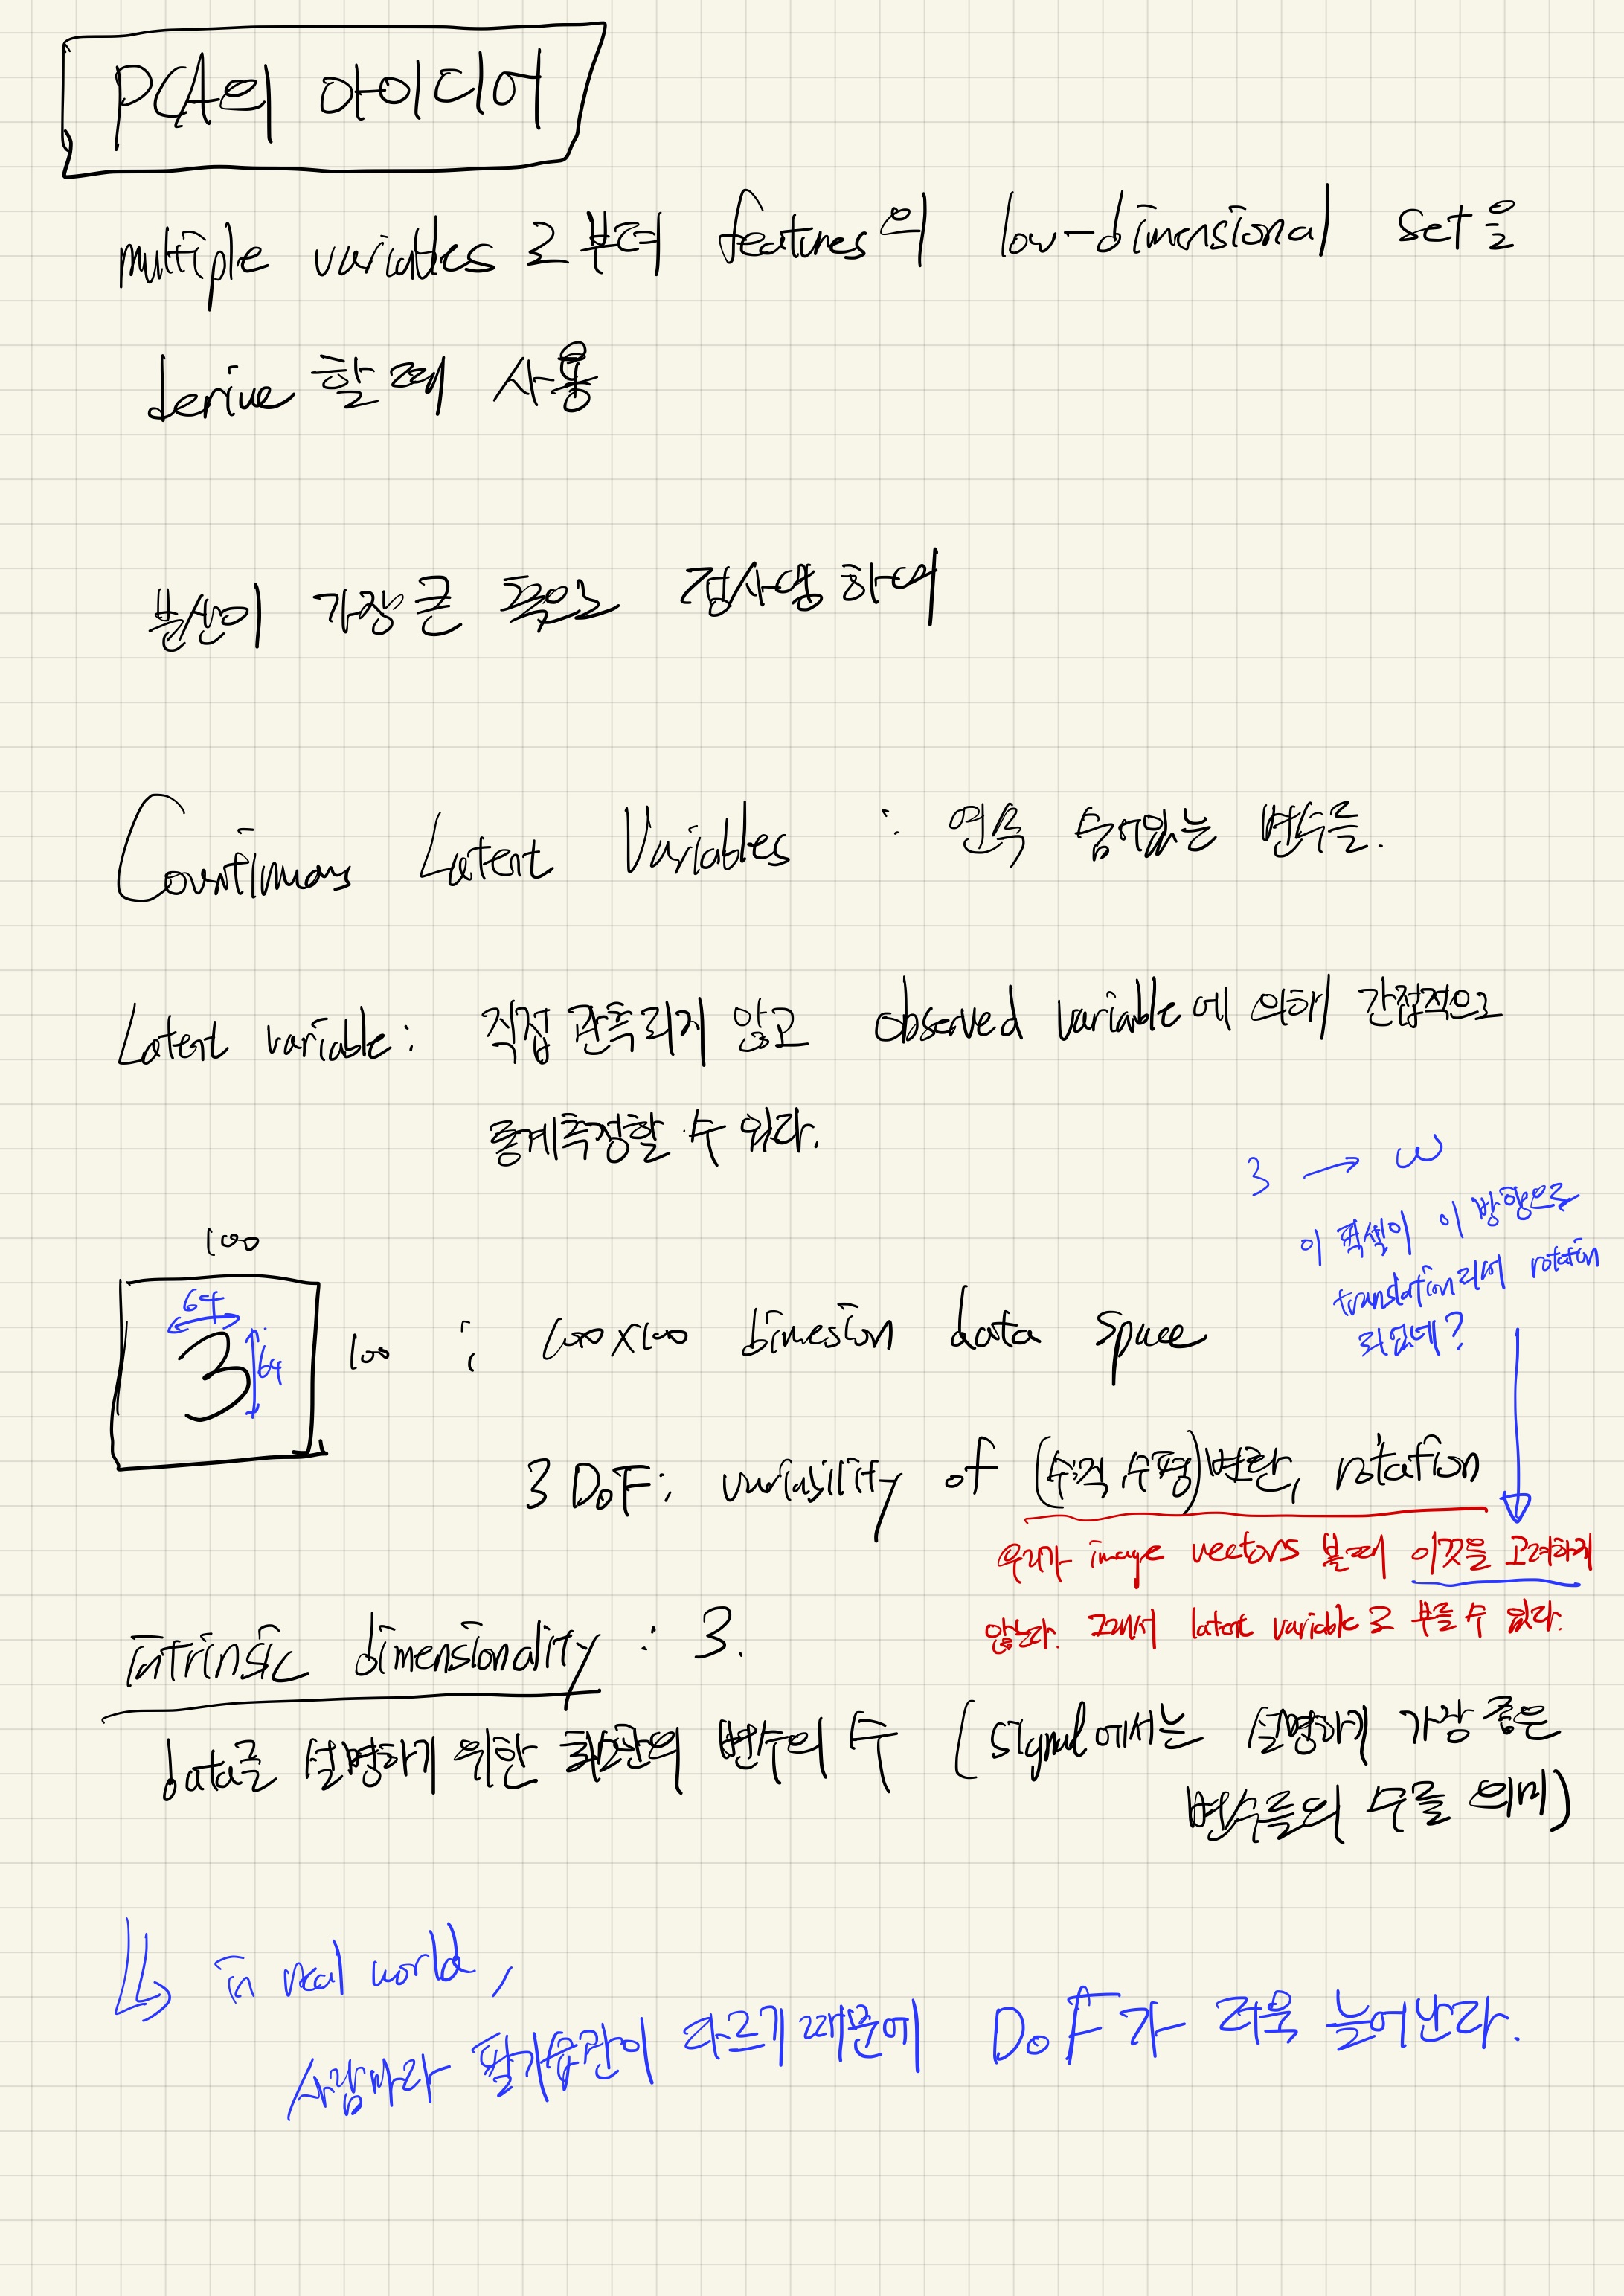 PCA의 아이디어
multiple variables로부터 features의 low-dimensional set을
derive할때 사용
분산이 가장 큰 쪽으로 정사영하여
Countinuous Latent Variables : 연속 숨어있는 변수들.
Latent variable: 직접 관측되지 않고 observed variable에 의해 간접적으로
통계측정할 수 있다.
3 → ω
이 픽셀이 이 방향으로
translation되어 rotation
되었네?
100
64
3
64
100 : 100x100 dimesion data space
3 DoF: variability of (수직 수평)변환, rotation
우리가 image vectors 볼때 이것을 고려하지
않는다. 그래서 latent variable로 부를 수 있다.
intrinsic dimensionality : 3.
data를 설명하기 위한 최소한의 변수의 수 (signal에서는 설명하기 가장 좋은
변수들의 수를 의미)
in real world,
사람마다 필기습관이 다르기 때문에 DoF가 더욱 늘어난다.